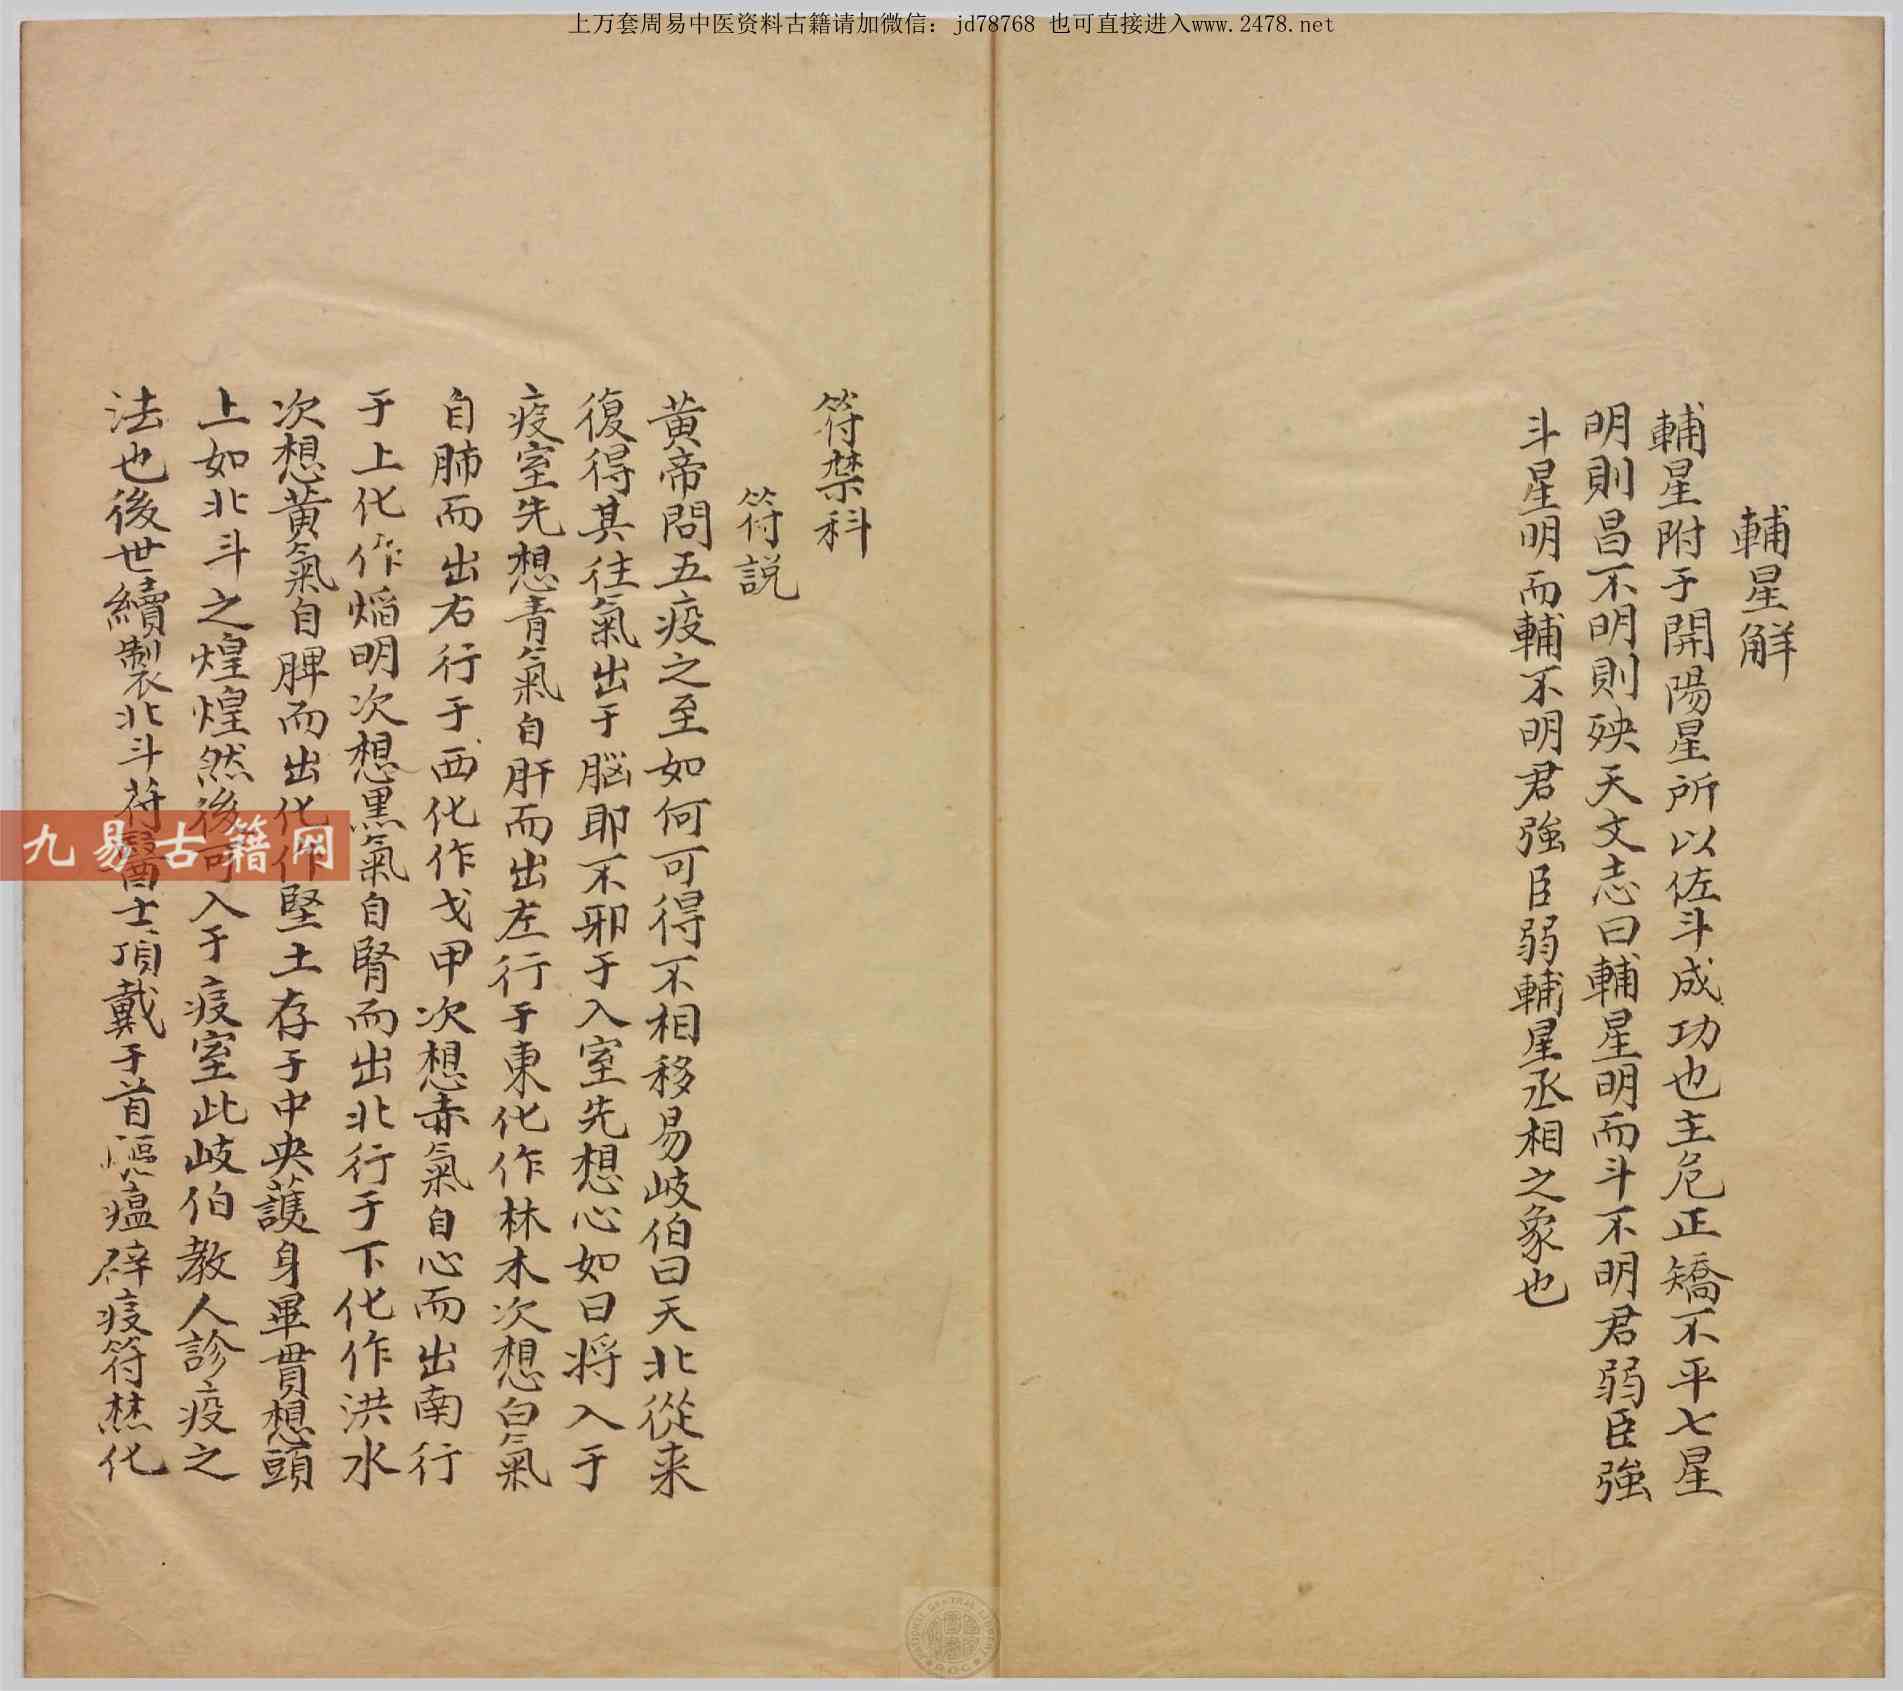 上万套周易中医资料古籍请加微信：jd78768 也可直接进入www.2478.net
輔星解
輔星附于開陽星所以佐斗成功也主危正矯不平七星
明則昌不明則殃天文志曰輔星明而斗不明君弱臣強
斗星明而輔不明君強臣弱輔星丞相之象也
符禁科
符説
黄帝問五疫之至如何可得不相移易岐伯曰天北從来
復得其往氣出于脳耶不邪于入室先想心如日将入于
疫室先想青氣自肝而出左行于東化作林木次想白氣
自肺而出右行于西化作戈甲次想赤氣自心而出南行
于上化作焰明次想黒氣自腎而出北行于下化作洪水
次想黃氣自脾而出化作堅土存于中央護身畢貫想頭
上如北斗之煌煌然後可入于疫室此岐伯教人診疫之
法也後世續製北斗符醫士頂戴于首瘟辟疫符焚化
九易古籍网